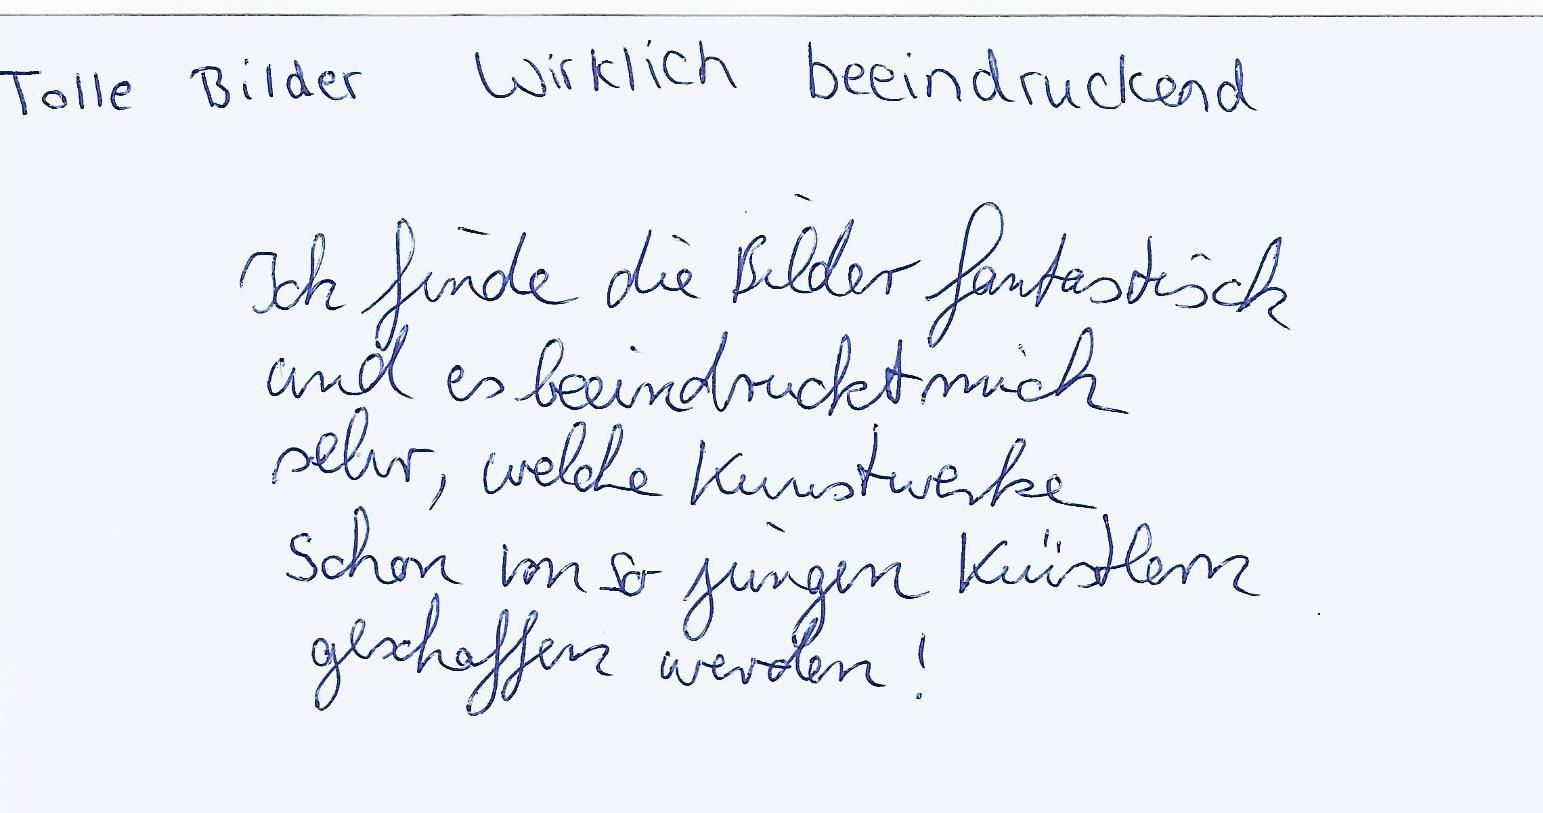 Tolle Bilder Wirklich beeindruckend
Ich finde die Bilder fantastisch
und es beeindruckt mich
sehr, welche Kunstwerke
schon von so jungen Küstlern
geschaffen werden!